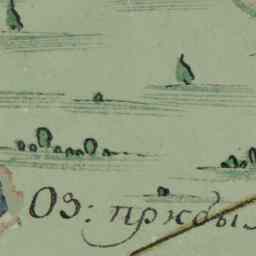 ОЗ: пржбы